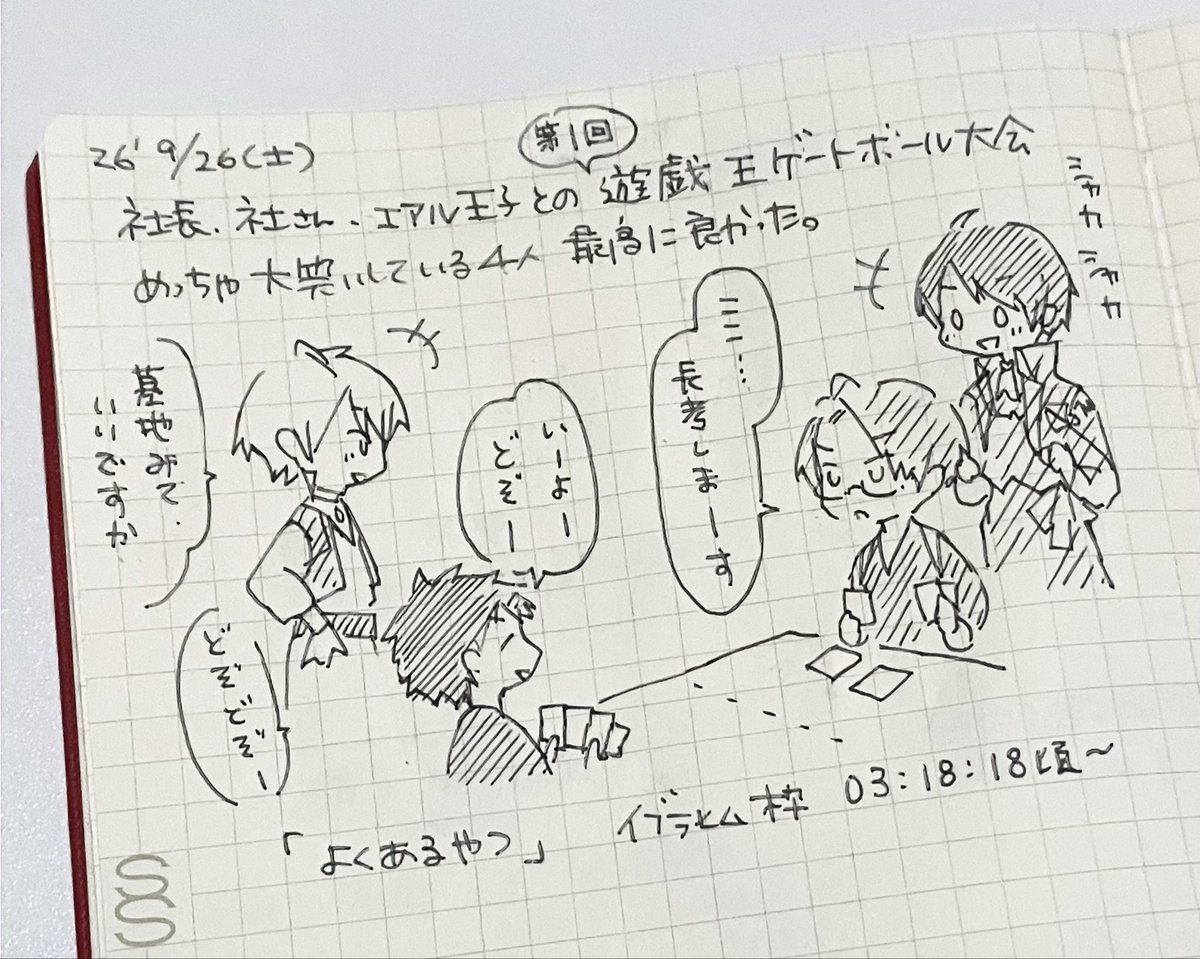 26' 9/26(土)
第1回
社長、社さん、エアル王子との遊戯王ゲートボール大会
めっちゃ大笑いしている4人 最高に良かった。
ミャカミャカ
ミニ…
長考しまーす
いーよー
どぞー
墓地みて、
いいですか
どぞどぞー
「よくあるやつ」
イブラヒム枠 03:18:18頃～